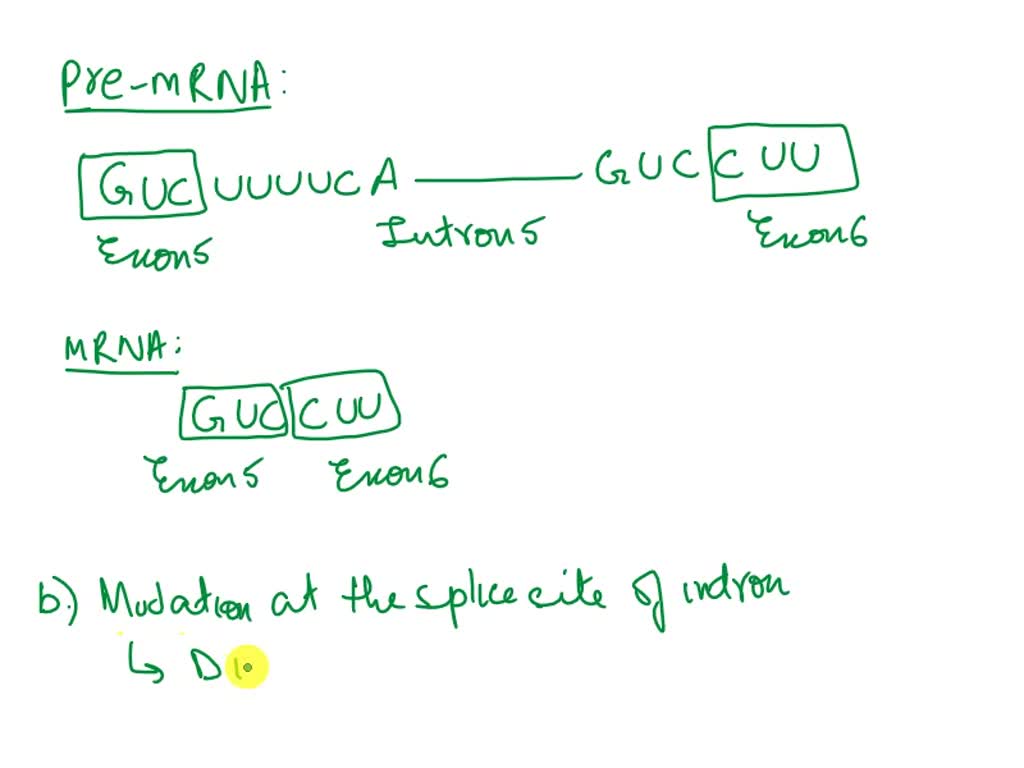 Pre-mRNA:
GUC UUUUCA — GUC CUU
Exon5 Intron5 Exon6
MRNA:
GUC CUU
Exon5 Exon6
b.) Mudation at the splice cite of indron
↳ D